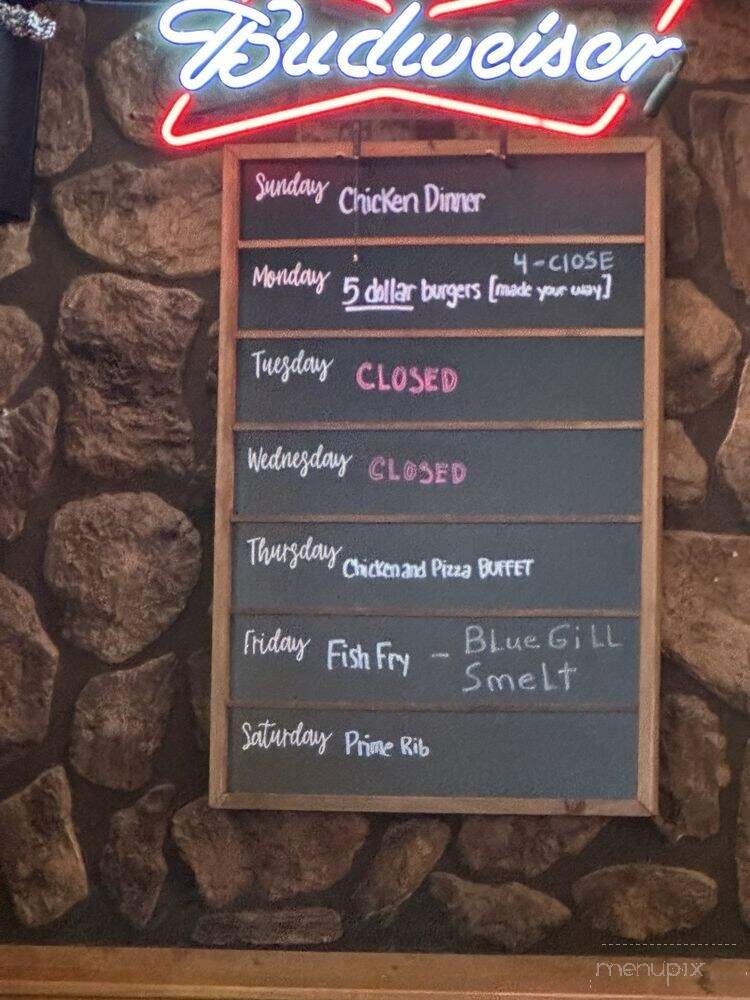 Budweiser
Sunday Chicken Dinner
4-CLOSE
Monday 5 dollar burgers [made your way]
Tuesday CLOSED
Wednesday CLOSED
Thursday Chicken and Pizza BUFFET
Friday Fish Fry - BLue GiLL
SmeLT
Saturday Prime Rib
menupix